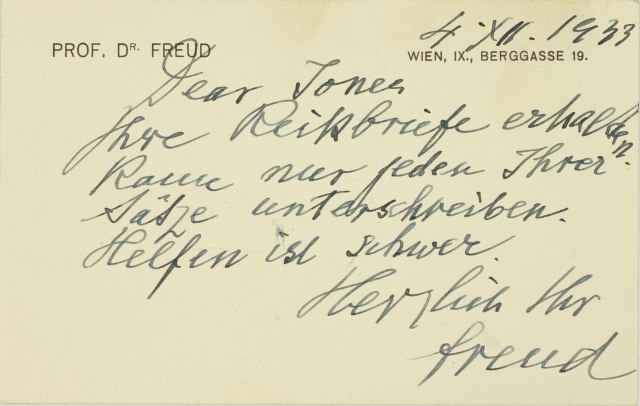 4. XII. 1933
PROF. DR. FREUD
WIEN, IX., BERGGASSE 19.
Dear Jones
Ihre Reikbriefe erhalten.
Kann nur jeden Ihrer
Sätze unterschreiben.
Helfen ist schwer.
Herzlich Ihr
Freud